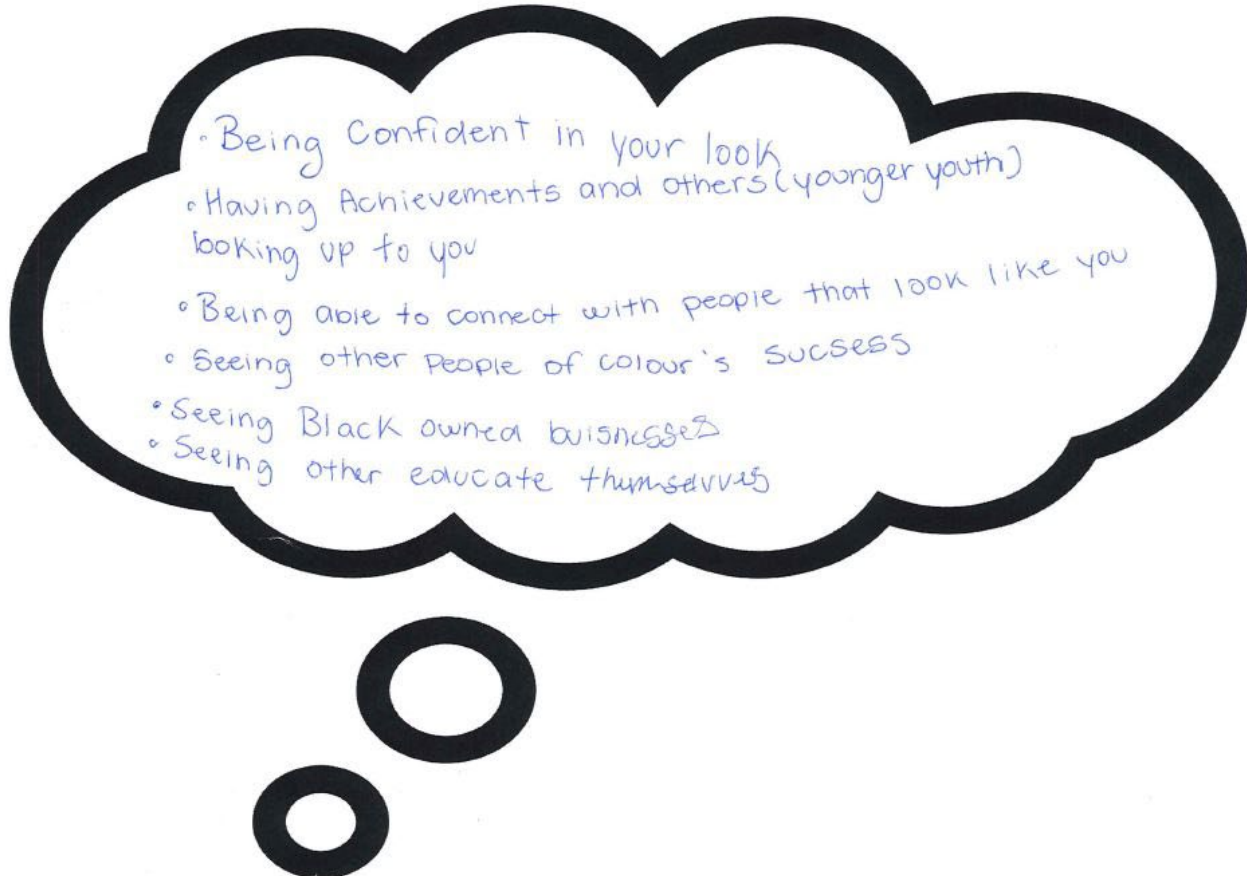 • Being Confident in your look
• Having Achievements and others (younger youth)
looking up to you
• Being able to connect with people that look like you
• Seeing other People of colour's sucsess
• Seeing Black owned buisnesses
• Seeing other educate themselvves